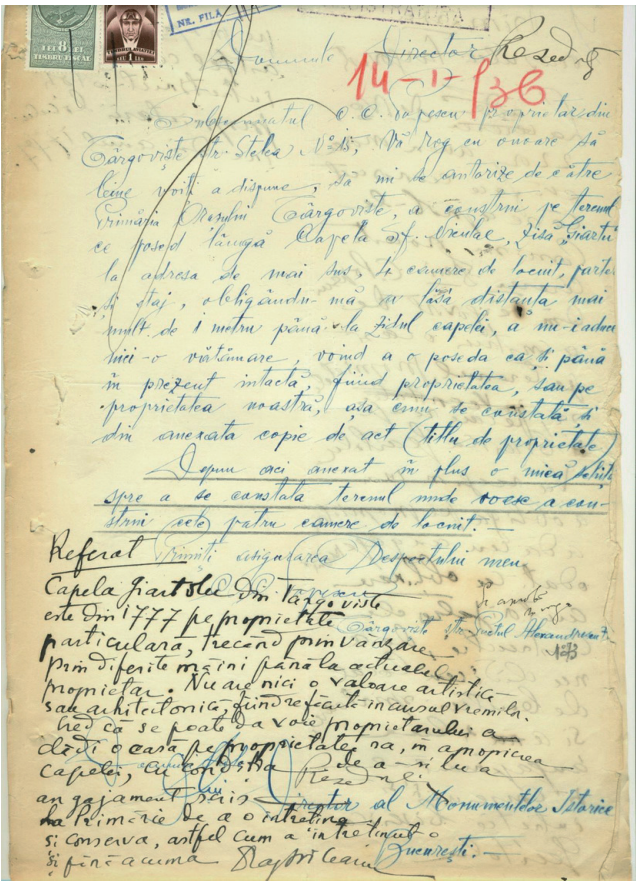 LEI 8 LEI
TIMBRU FISCAL
LEU 1 LEU
NR. FILA
Domnule Director
14-II-936
Subsemnatul C. C. Popescu proprietar din
Târgoviște str. Stelea No 15, Vă rog cu onoare să
bine voiți a dispune, să mi se autorize de către
Primăria Orașului Târgoviște, a construi pe terenul
ce posed lângă Capela Sf. Nicolae, zisă „Giartu
la adresa de mai sus, camere de locuit, parter
și etaj, obligându-mă a lăsa distanța mai
mult de 1 metru până la zidul capelei, a nu-i aduce
nici-o vătămare, voind a o poseda ca și până
în prezent intactă, fiind proprietatea, sau pe
proprietatea noastră, așa cum se constată și
din anexata copie de act (titlu de proprietate)
Depun aci anexat în plus o mică schiță
spre a se constata terenul unde voesc a con-
strui cele patru camere de locuit.-
Primiți asigurarea Respectului meu
Târgoviște str.
Referat
Capela Giartolu din Targoviste
este din 1777 pe proprietate
particulară, trecând prin vânzare
prin diferite maini pana la actualul
proprietar. Nu are nici o valoare artistică
sau arhitectonică, fiind refăcută in cursul vremilor.
Cred că se poate da voie proprietarului a
clădi o casă pe proprietatea sa, in apropierea
capelei, cu conditia de a-si lua
angajament scris
la Primărie de a o intretine
si conserva, astfel cum a intretinut-o
si până acuma
Director al Monumentelor Istorice
București.-